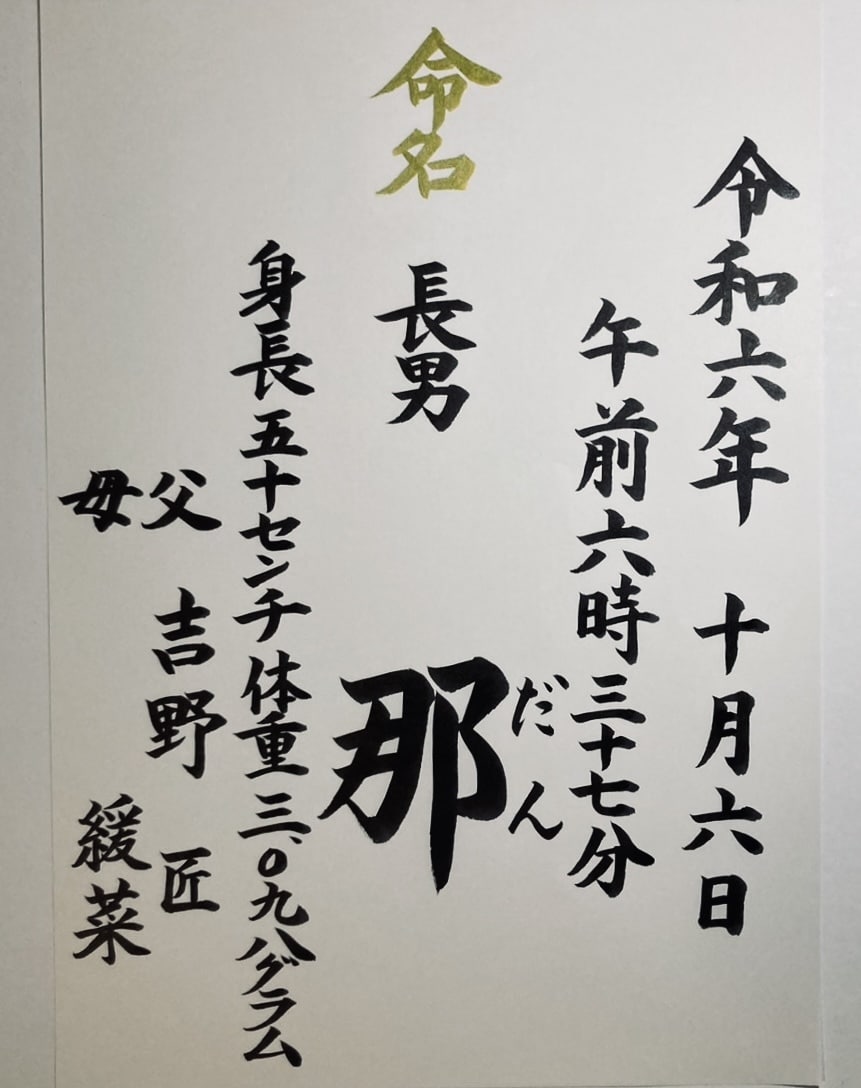 令和六年 十月六日
午前六時三十七分
命名
長男
那
だん
身長五十センチ体重三、〇九八グラム
父 吉野 匠
母 緩菜